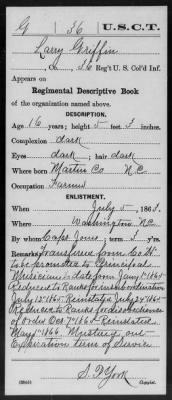 G 36 U.S.C.T.
Larry Griffin
36 Reg't U.S. Col'd Inf.
Appears on
Regimental Descriptive Book
of the organization named above.
DESCRIPTION.
Age 16 years; height 5 feet 3 inches.
Complexion dark
Eyes dark; hair dark
Where born Martin Co N.C.
Occupation Farmer
ENLISTMENT.
When July 5, 1863.
Where Washington N.C.
By whom Capt Jones; term 3 y'rs.
Remarks: Transferred from Co H
to be promoted to Principal
Musician to date from Jany 1st 1865
Reduced to Ranks for insubordination
July 12" 1865 Reinstated July 24" 1865
Reduced to Ranks for disobedience
of order Oct 7" 1865 Reinstated
May 1st 1866. Mustered out
Expiration term of Service
York
Copyist.